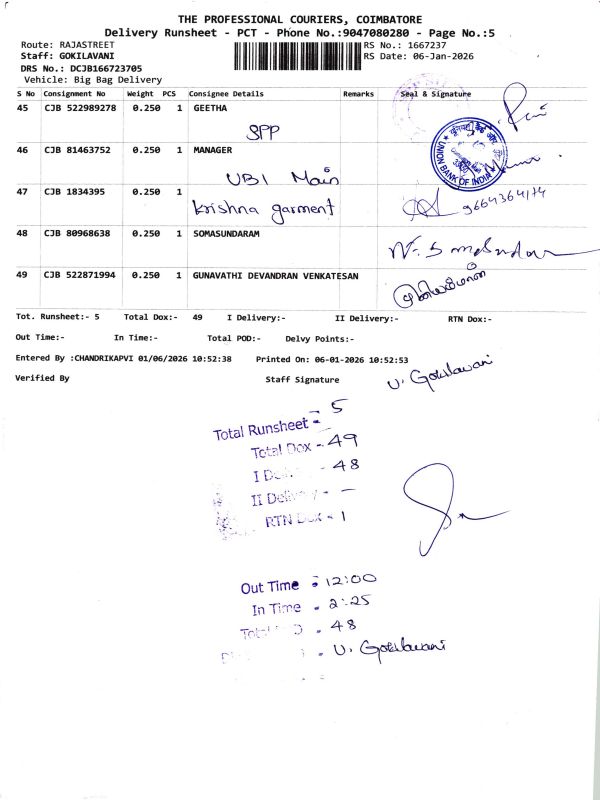 THE PROFESSIONAL COURIERS, COIMBATORE
Delivery Runsheet - PCT - Phone No.:9047080280 - Page No.:5
Route: RAJASTREET RS No.: 1667237
Staff: GOKILAVANI RS Date: 06-Jan-2026
DRS No.: DCJB166723705
Vehicle: Big Bag Delivery
S No Consignment No Weight PCS Consignee Details Remarks Seal & Signature
45 CJB 522989278 0.250 1 GEETHA
SPP
46 CJB 81463752 0.250 1 MANAGER
UBI Main
UNION BANK OF INDIA
47 CJB 1834395 0.250 1
krishna garment
48 CJB 80968638 0.250 1 SOMASUNDARAM
49 CJB 522871994 0.250 1 GUNAVATHI DEVANDRAN VENKATESAN
Tot. Runsheet:- 5 Total Dox:- 49 I Delivery:- II Delivery:- RTN Dox:-
Out Time:- In Time:- Total POD:- Delvy Points:-
Entered By :CHANDRIKAPVI 01/06/2026 10:52:38 Printed On: 06-01-2026 10:52:53
Verified By Staff Signature U. Gokilavani
Total Runsheet - 5
Total Dox - 49
I De - 48
II Delivery - —
RTN Dox - 1
Out Time - 12:00
In Time - 2:25
Total - 48
U. Gokilavani